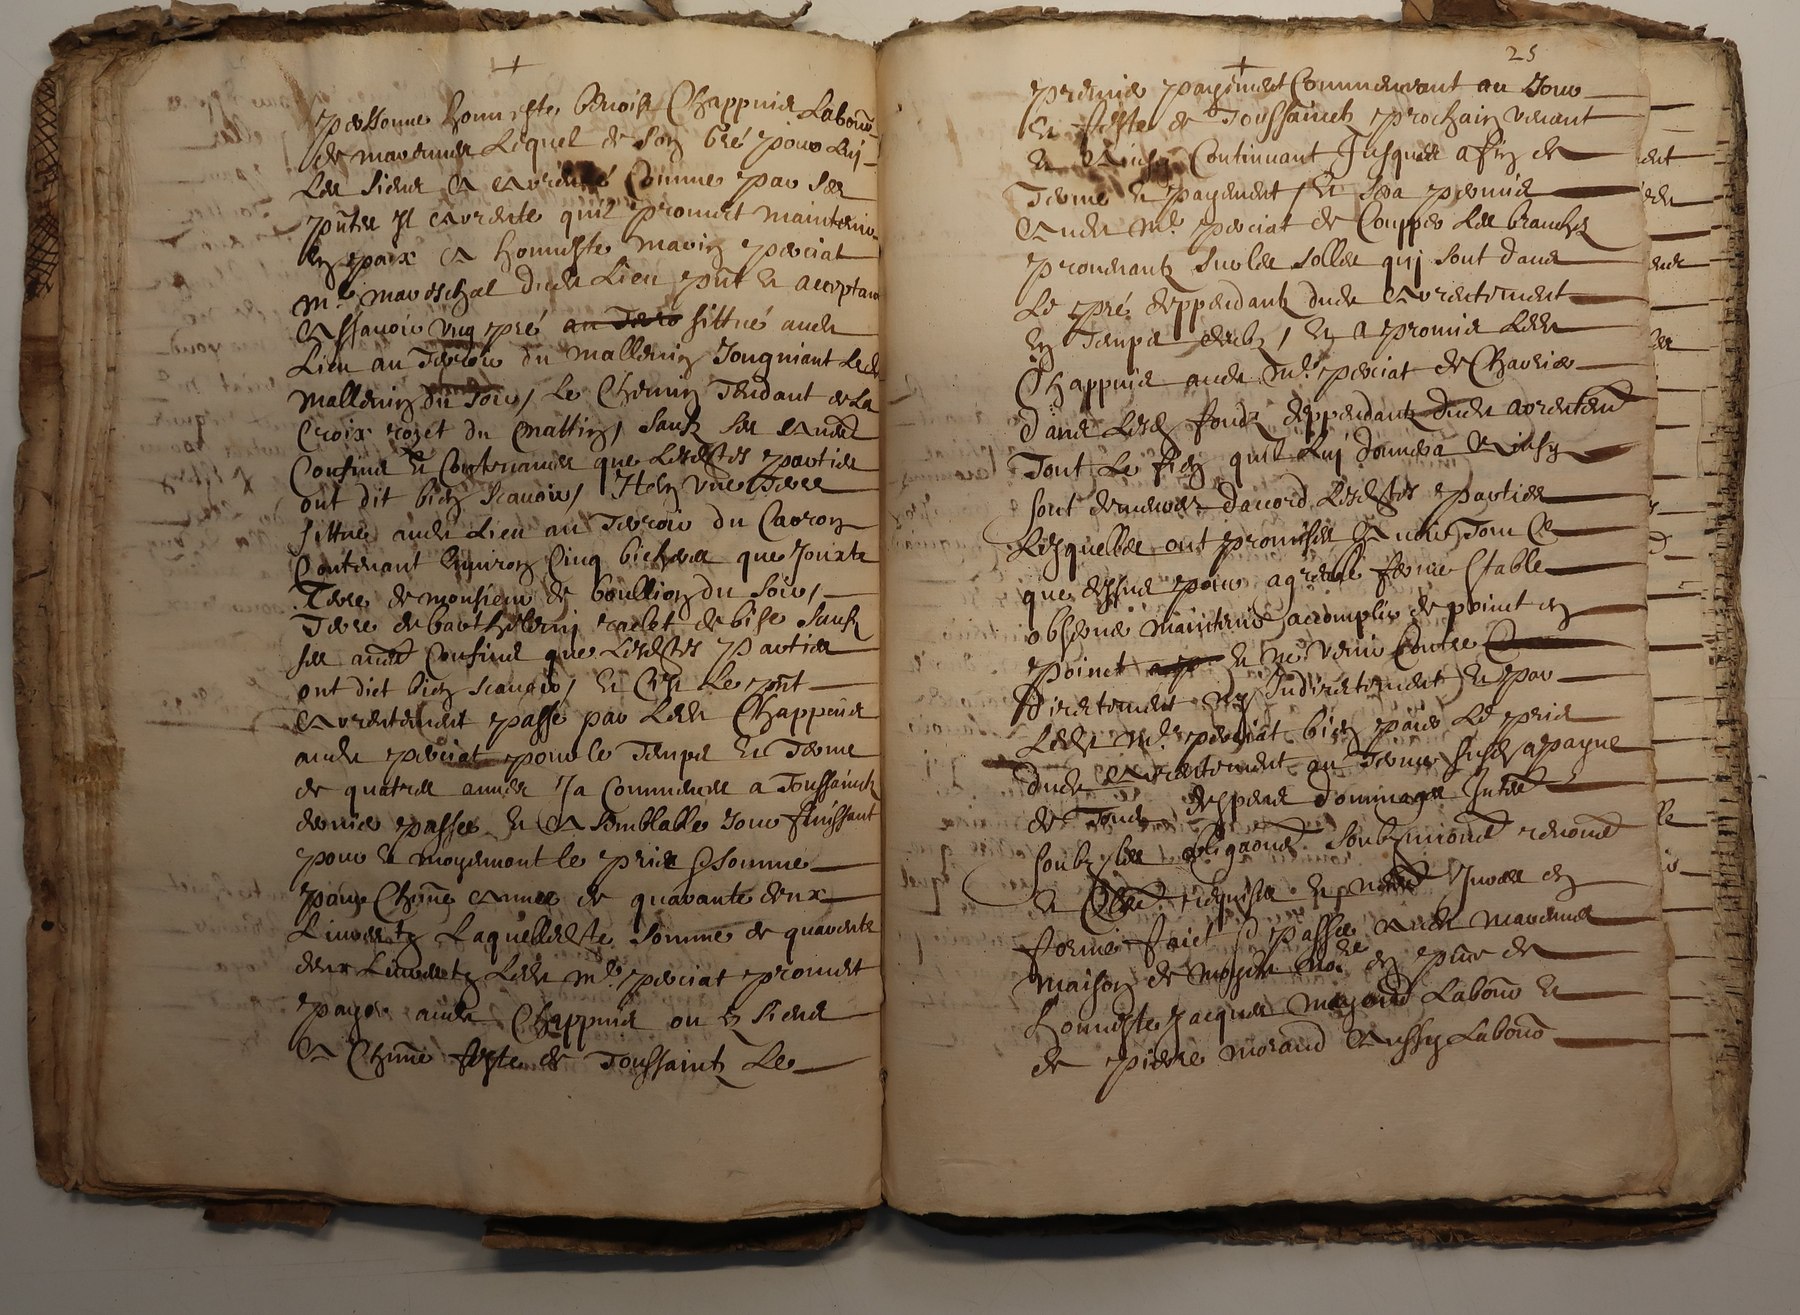 personne honneste benoist Chappuis Labour
de mavennes Lequel de son gré pour Luy
Les siens a arrenté Comme par ses
pntes Il arrente quil promet maintenir
En paix a honneste marin perciat
mre mareschal dudt Lieu pnt et acceptant
Assavoir ung pré sittué audt
Lieu au Terroir du mallenin Jougniant Ledt
mallenin du soir, Le Chemin Tendant de La
Croix rozet du mattin, Sauf ses audt
Confins et Contenances que Lesdtes parties
ont dit bien scavoir, Item une Terre
sittue audt Lieu au Terroir du Cavron
Contenant Environ Cinq bicherees que Jouxte
Terre de monsieur de boullion du soir,
Terre de barthelemy raclet de bise Sauf
ses autt Confins que Lesdtes parties
ont dict bien scavoir, Et Cest Le pnt
arrentement passé par Ledt Chappuis
audt perciat pour le Temps et Terme
de quatre annees Ja Commencee a Toussainct
dernier passee et a semblable Jour finissant
pour et moyennant le pris & somme
pour Chune annee de quarante deux
Livres tz Laquelle dte somme de quarente
deux Livres tz Ledt mre perciat promet
payer audt Chappuis ou es siens
a Chune feste de Toussaintz Le
25
premier payement Commencant au Jour
et feste de Toussainctz prochain venant
et Ainsy Continuant Jusques a fin de
Terme et payement, Et sera permis
Audt Mre perciat de Coupper Les branches
provenantz sur les solles quy sont dans
Le pré deppendantz dudt arrentement
En Temps deub, Et a promis Ledt
Chappuis audt Mre perciat de Charier
dans Lesd fondz deppendantz dudt arrentemt
Tout Le fien quil Luy donnera Et ainsy
sont demeures daccord Lesdtes parties
Lesquelles ont promises Avoir Tout Ce
que dessus pour agreable ferme stable
observer maintenir accomplir de poinct en
poinct et ne venir Contre
directement ny Indirectement Et par
Ledt Mre perciat bien payer Le pris
dudt arrentement au Terme susd a payne
de Tous despens dommages Intetz
soubz les obligaons soubzmions renons
et Claes requises Et Jurees en
forme faict & passee Audt mavennes
maison de moydt nore en pnce de
honneste Jacques Labour et
de pierre morand Aussy Labour